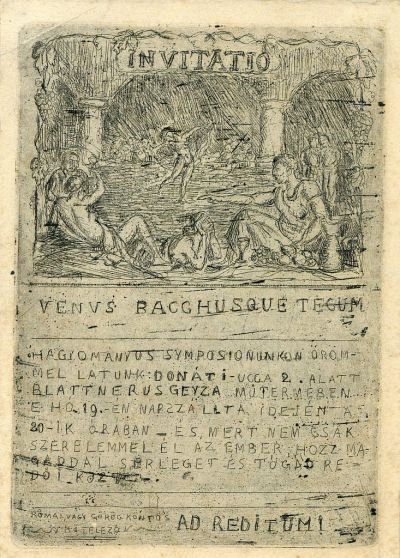 INVITATIO
VENVS BACCHUSQUE TECUM
HAGYOMÁNYUS SYMPOSIONUNKON ÖRÖM-
MEL LÁTUNK: DONÁTI-UCCA 2. ALATT
BLATTNERUS GEYZA MŰTERMÉBEN
E HÓ 19.-ÉN NAPSZÁLLTA IDEJÉN A
20-IK ÓRÁBAN. ÉS, MERT NEM CSAK
SZERELEMMEL ÉL AZ EMBER: HOZZ MA-
GADDAL SERLEGET ÉS TÓGÁD RE-
DŐI KÖZT
RÓMAI VAGY GÖRÖG KÖNTÖS
KÖTELEZŐ
AD REDITUM!